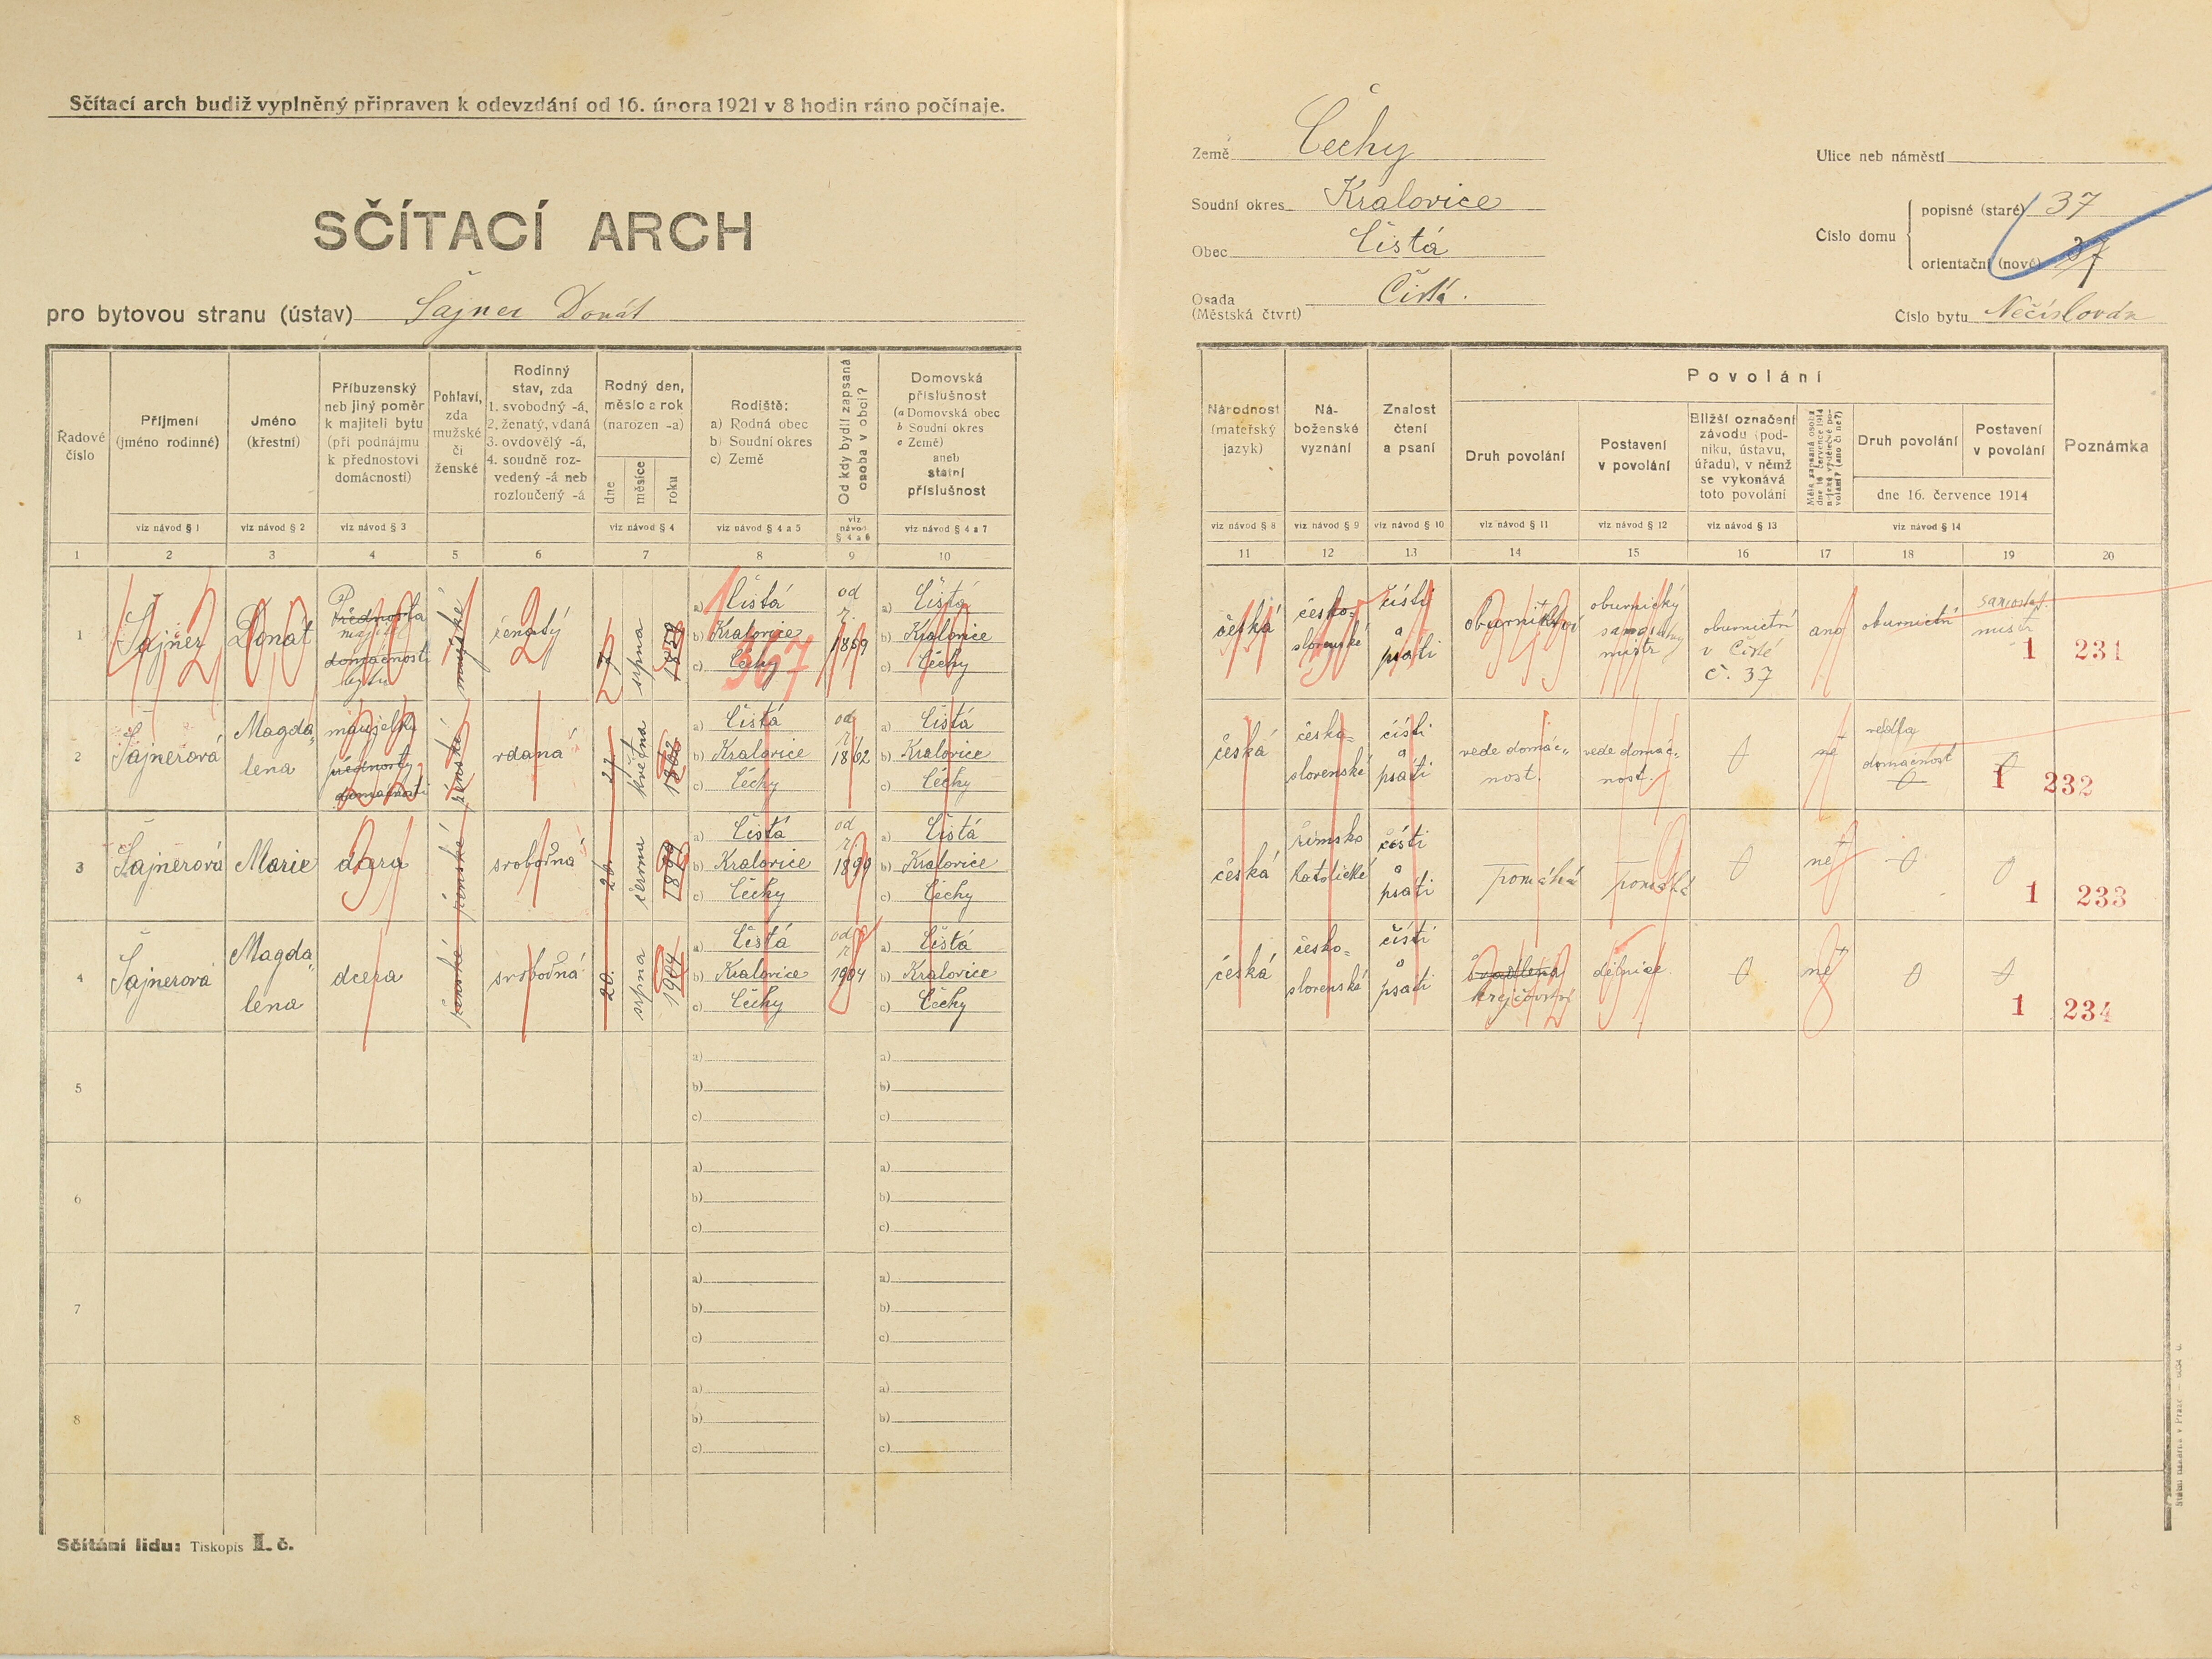 Sčítací arch budiž vyplněný připraven k odevzdání od 16. února 1921 v 8 hodin ráno počínaje.
SČÍTACÍ ARCH
pro bytovou stranu (ústav) Šajner Donát
Země Čechy
Soudní okres Kralovice
Obec Čistá
Osada Čistá.
(Městská čtvrt)
Ulice neb náměstí
Číslo domu
popisné (staré) 37
orientační (nové) 37
Číslo bytu Nečíslován
Řadové číslo
Příjmení (jméno rodinné)
viz návod § 1
Jméno (křestní)
viz návod § 2
Příbuzenský neb jiný poměr k majiteli bytu (při podnájmu k přednostovi domácnosti)
viz návod § 3
Pohlaví, zda mužské či ženské
Rodinný stav, zda 1. svobodný -á, 2. ženatý, vdaná 3. ovdovělý -á, 4. soudně rozvedený -á neb rozloučený -á
Rodný den, měsíc a rok (narozen -a)
dne
měsíce
roku
viz návod § 4
Rodiště: a) Rodná obec b) Soudní okres c) Země
viz návod § 4 a 5
Od kdy bydlí zapsaná osoba v obci?
viz návod § 4 a 6
Domovská příslušnost (a Domovská obec b Soudní okres c Země) aneb statní příslušnost
viz návod § 4 a 7
1 2 3 4 5 6 7 8 9 10
1 Šajner Donát Přednosta domácnosti bytu mužské ženatý 7 srpna 1859 a) Čistá b) Kralovice c) Čechy od r. 1859 a) Čistá b) Kralovice c) Čechy
367
2 Šajnerová Magdalena manželka přednosty domácnosti ženské vdaná 27 května 1862 a) Čistá b) Kralovice c) Čechy od r. 1862 a) Čistá b) Kralovice c) Čechy
3 Šajnerová Marie dcera ženské svobodná 26. června 1899 a) Čistá b) Kralovice c) Čechy od r. 1899 a) Čistá b) Kralovice c) Čechy
4 Šajnerová Magdalena dcera ženské svobodná 20. srpna 1904 a) Čistá b) Kralovice c) Čechy od r. 1904 a) Čistá b) Kralovice c) Čechy
5 a) b) c) a) b) c)
6 a) b) c) a) b) c)
7 a) b) c) a) b) c)
8 a) b) c) a) b) c)
Sčítání lidu: Tiskopis I. č.
Národnost (mateřský jazyk)
viz návod § 8
Náboženské vyznání
viz návod § 9
Znalost čtení a psaní
viz návod § 10
Povolání
Druh povolání
viz návod § 11
Postavení v povolání
viz návod § 12
Bližší označení závodu (podniku, ústavu, úřadu), v němž se vykonává toto povolání
viz návod § 13
Měla zapsaná osoba dne 16 července 1914 nějaké výdělečné povolání? (ano či ne?)
Druh povolání
Postavení v povolání
dne 16. července 1914
viz návod § 14
Poznámka
11 12 13 14 15 16 17 18 19 20
česká československé čísti a psáti obuvnictví obuvnický samostatný mistr obuvnictví v Čisté č. 37 ano obuvnictví samostat. mistr 1 231
česká československé čísti a psáti vede domácnost. vede domácnost. 0 ne vedla domácnost 0 1 232
česká římsko katolické čésti a psáti pomáhá pomáhá 0 ne 0 0 1 233
česká československé čísti a psáti švadlena krejčovství dělnice 0 ne 0 0 1 234